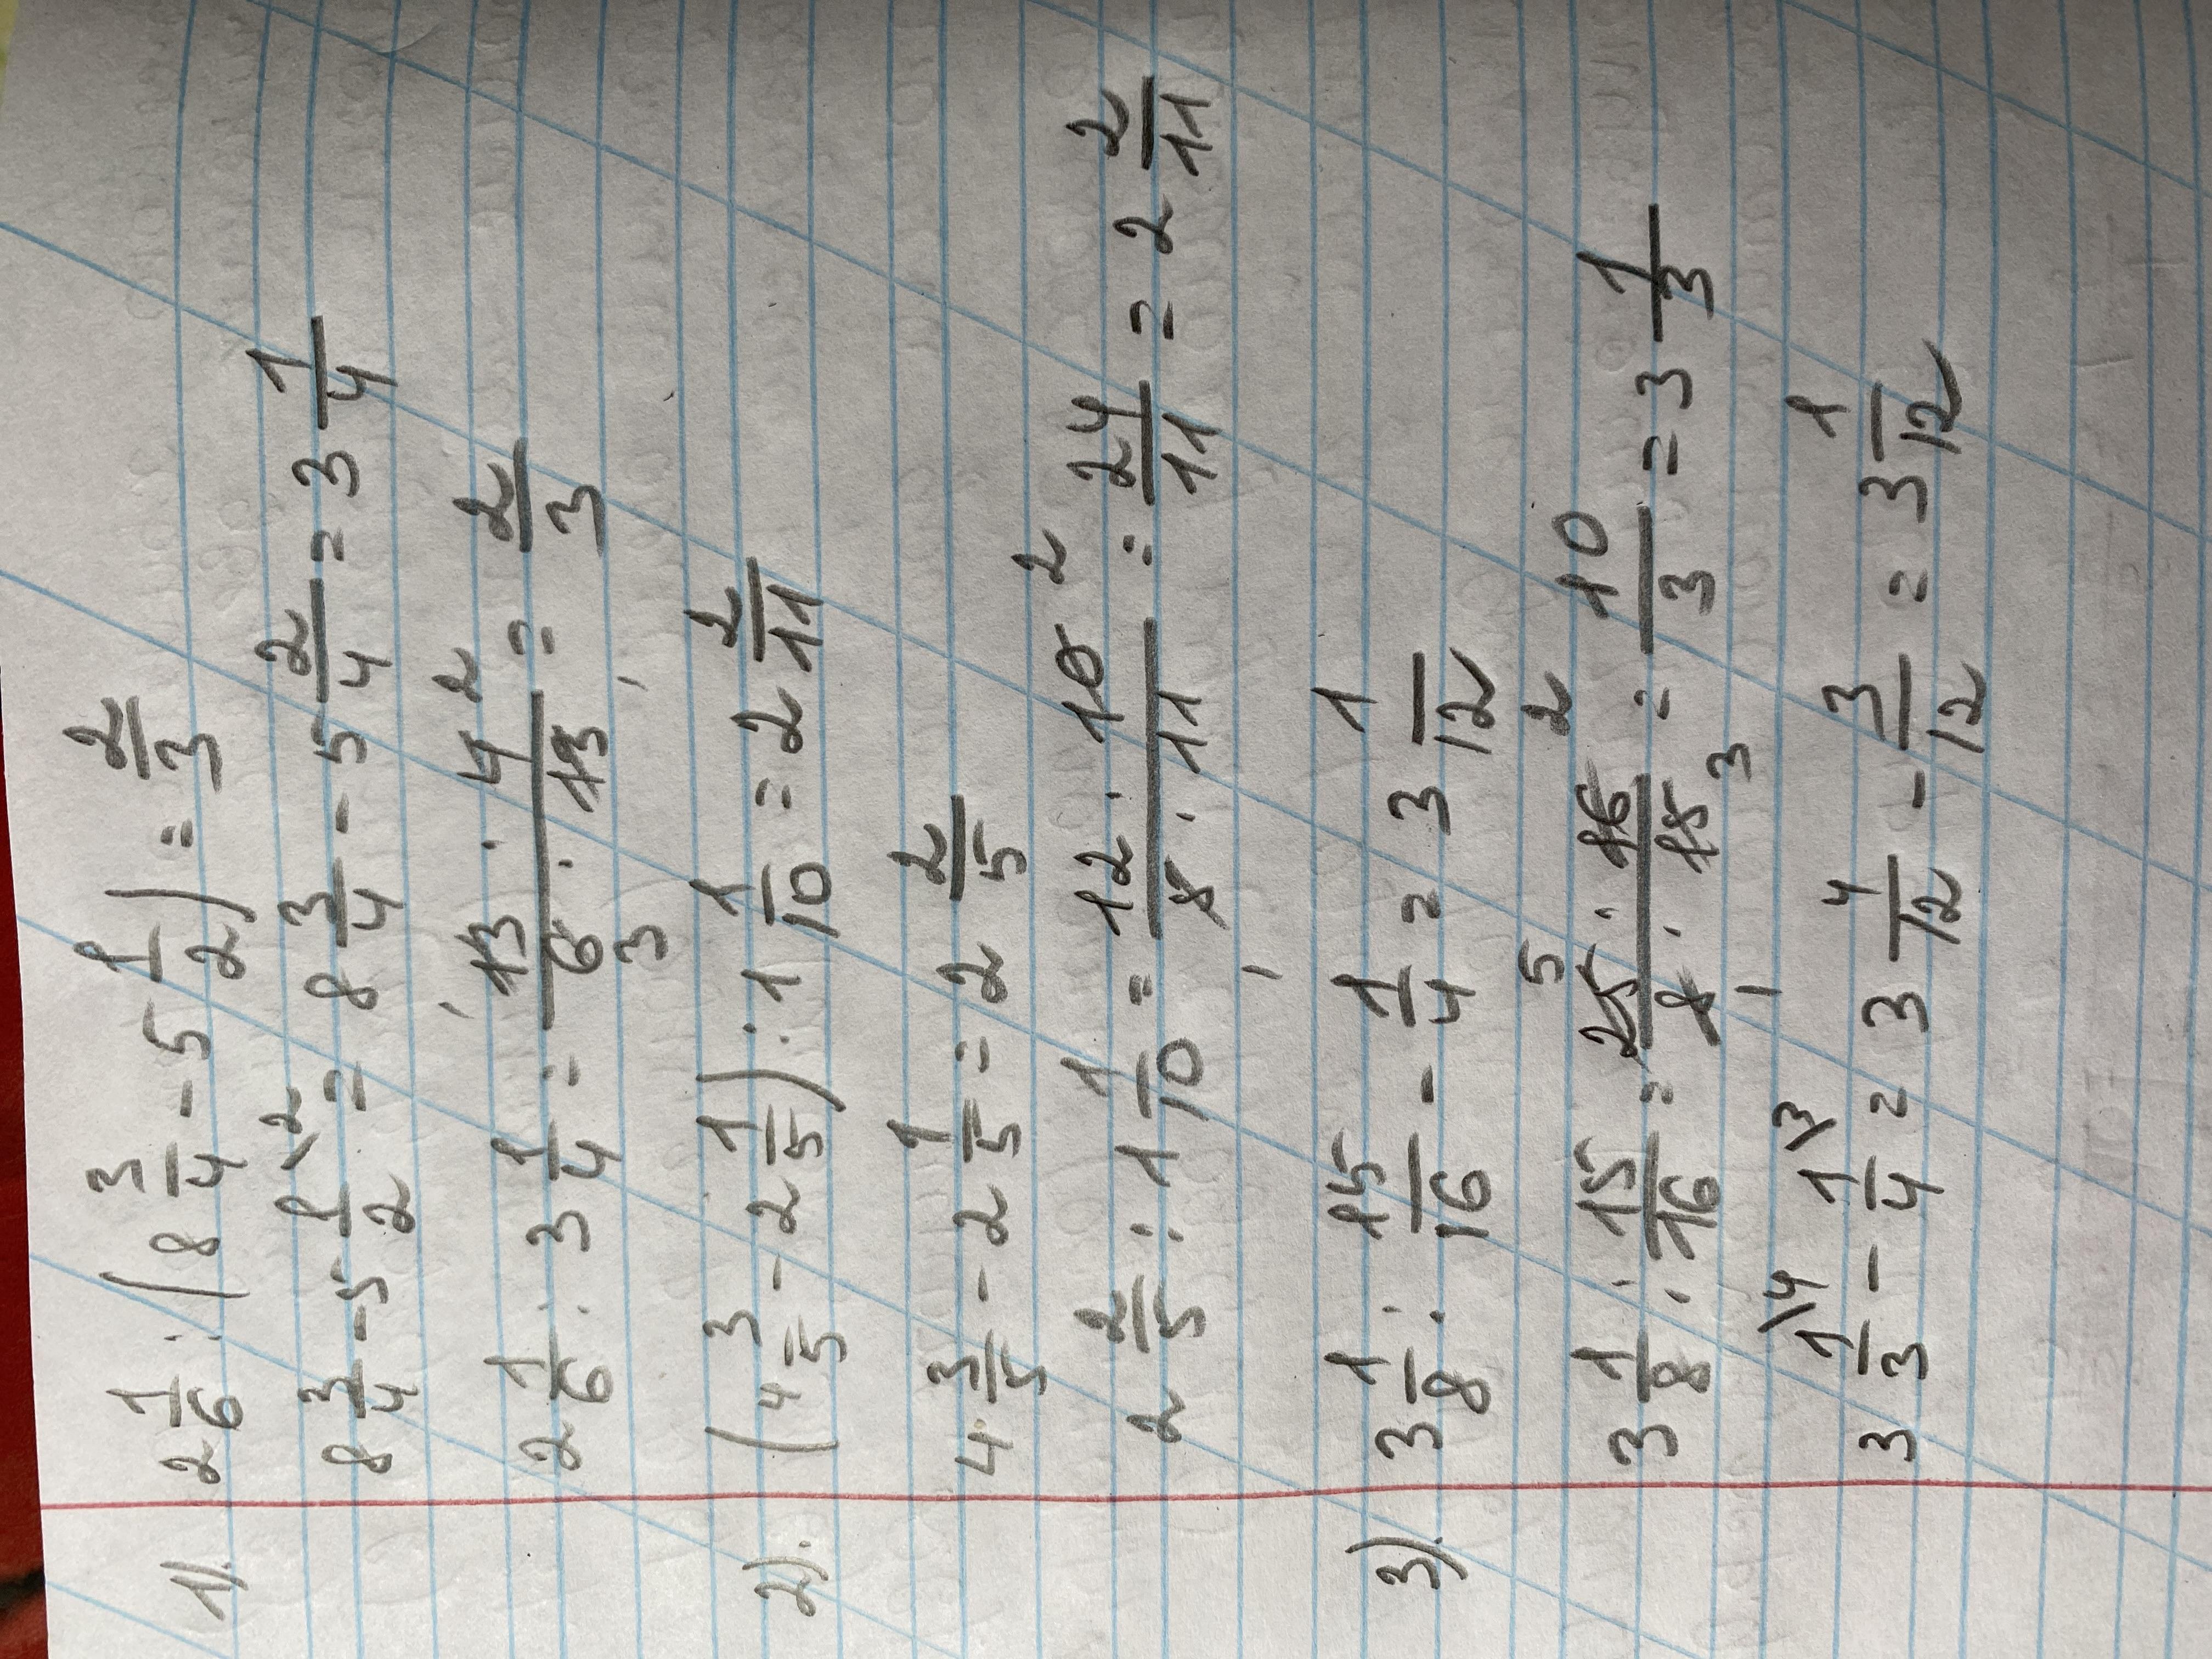 1). 2 1/6 : (8 3/4 - 5 1/2) = 2/3
8 3/4 - 5 1\2/2 = 8 3/4 - 5 2/4 = 3 1/4
2 1/6 : 3 1/4 = 13 1 · 4 2 / 6 3 · 13 1 = 2/3
2). (4 3/5 - 2 1/5) : 1 1/10 = 2 2/11
4 3/5 - 2 1/5 = 2 2/5
2 2/5 : 1 1/10 = 12 · 10 2 / 5 1 · 11 = 24/11 = 2 2/11
3). 3 1/8 : 15/16 - 1/4 = 3 1/12
3 1/8 : 15/16 = 25 5 · 16 2 / 8 1 · 15 3 = 10/3 = 3 1/3
3 1\4/3 - 1\3/4 = 3 4/12 - 3/12 = 3 1/12